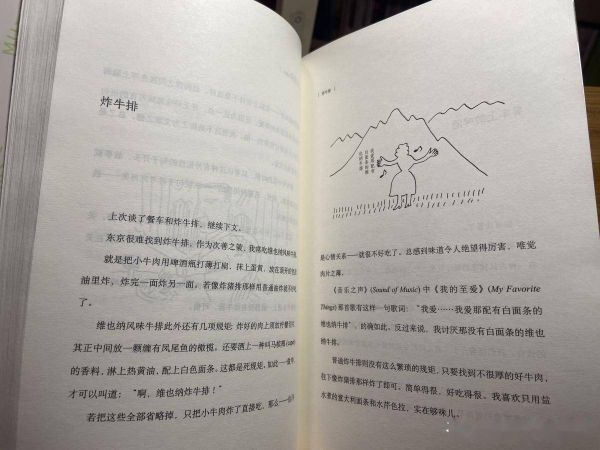 炸牛排
上次谈了餐车和炸牛排，继续下文。
东京很难找到炸牛排。作为次善之策，我常吃维也纳风味牛排，
就是把小牛肉用啤酒瓶打薄打扁，抹上蛋黄，放在滚开的
油里炸，炸完一面炸另一面。若像炸猪排那样用普通油炸就不同
了。
维也纳风味牛排此外还有几项规矩：炸好的肉上须放柠檬片，
其正中间放一颗缠有凤尾鱼的橄榄。还要洒上一种叫马槟榔(caper)
的香料，淋上热黄油，配上白色面条。这都是死规矩，如此一
才可以叫道：“啊，维也纳炸牛排！”
若把这些全部省略掉，只把小牛肉炸了直接吃，那么——也许
［ 炸牛排 ］
是心情关系——就很不好吃了。总感到味道令人绝望得厉害，唯觉
肉片之薄。
《音乐之声》(Sound of Music) 中《我的至爱》(My Favorite
Things) 那首歌有这样一句歌词：“我爱……我爱那配有白面条的维
也纳牛排”，的确如此。反过来说，我讨厌那没有白面条的维也
纳牛排。
普通炸牛排则没有这么繁琐的规矩，只要找到不很厚的好牛肉，
往下像炸猪排那样炸了即可，简单得很，好吃得很。我喜欢只用盐
水煮的意大利面条和水芹色拉，实在够味儿。